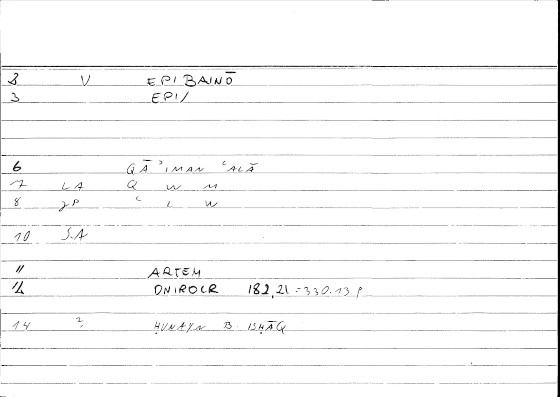 2 V EPIBAINŌ
3 EPI/
6 QĀʾIMAN ʿALĀ
7 LA Q W M
8 JP ʿ L W
10 S.A
11 ARTEM
12 ONIROCR 182,21 = 330.13 p
14 ? ḤUNAYN B. ISḤĀQ